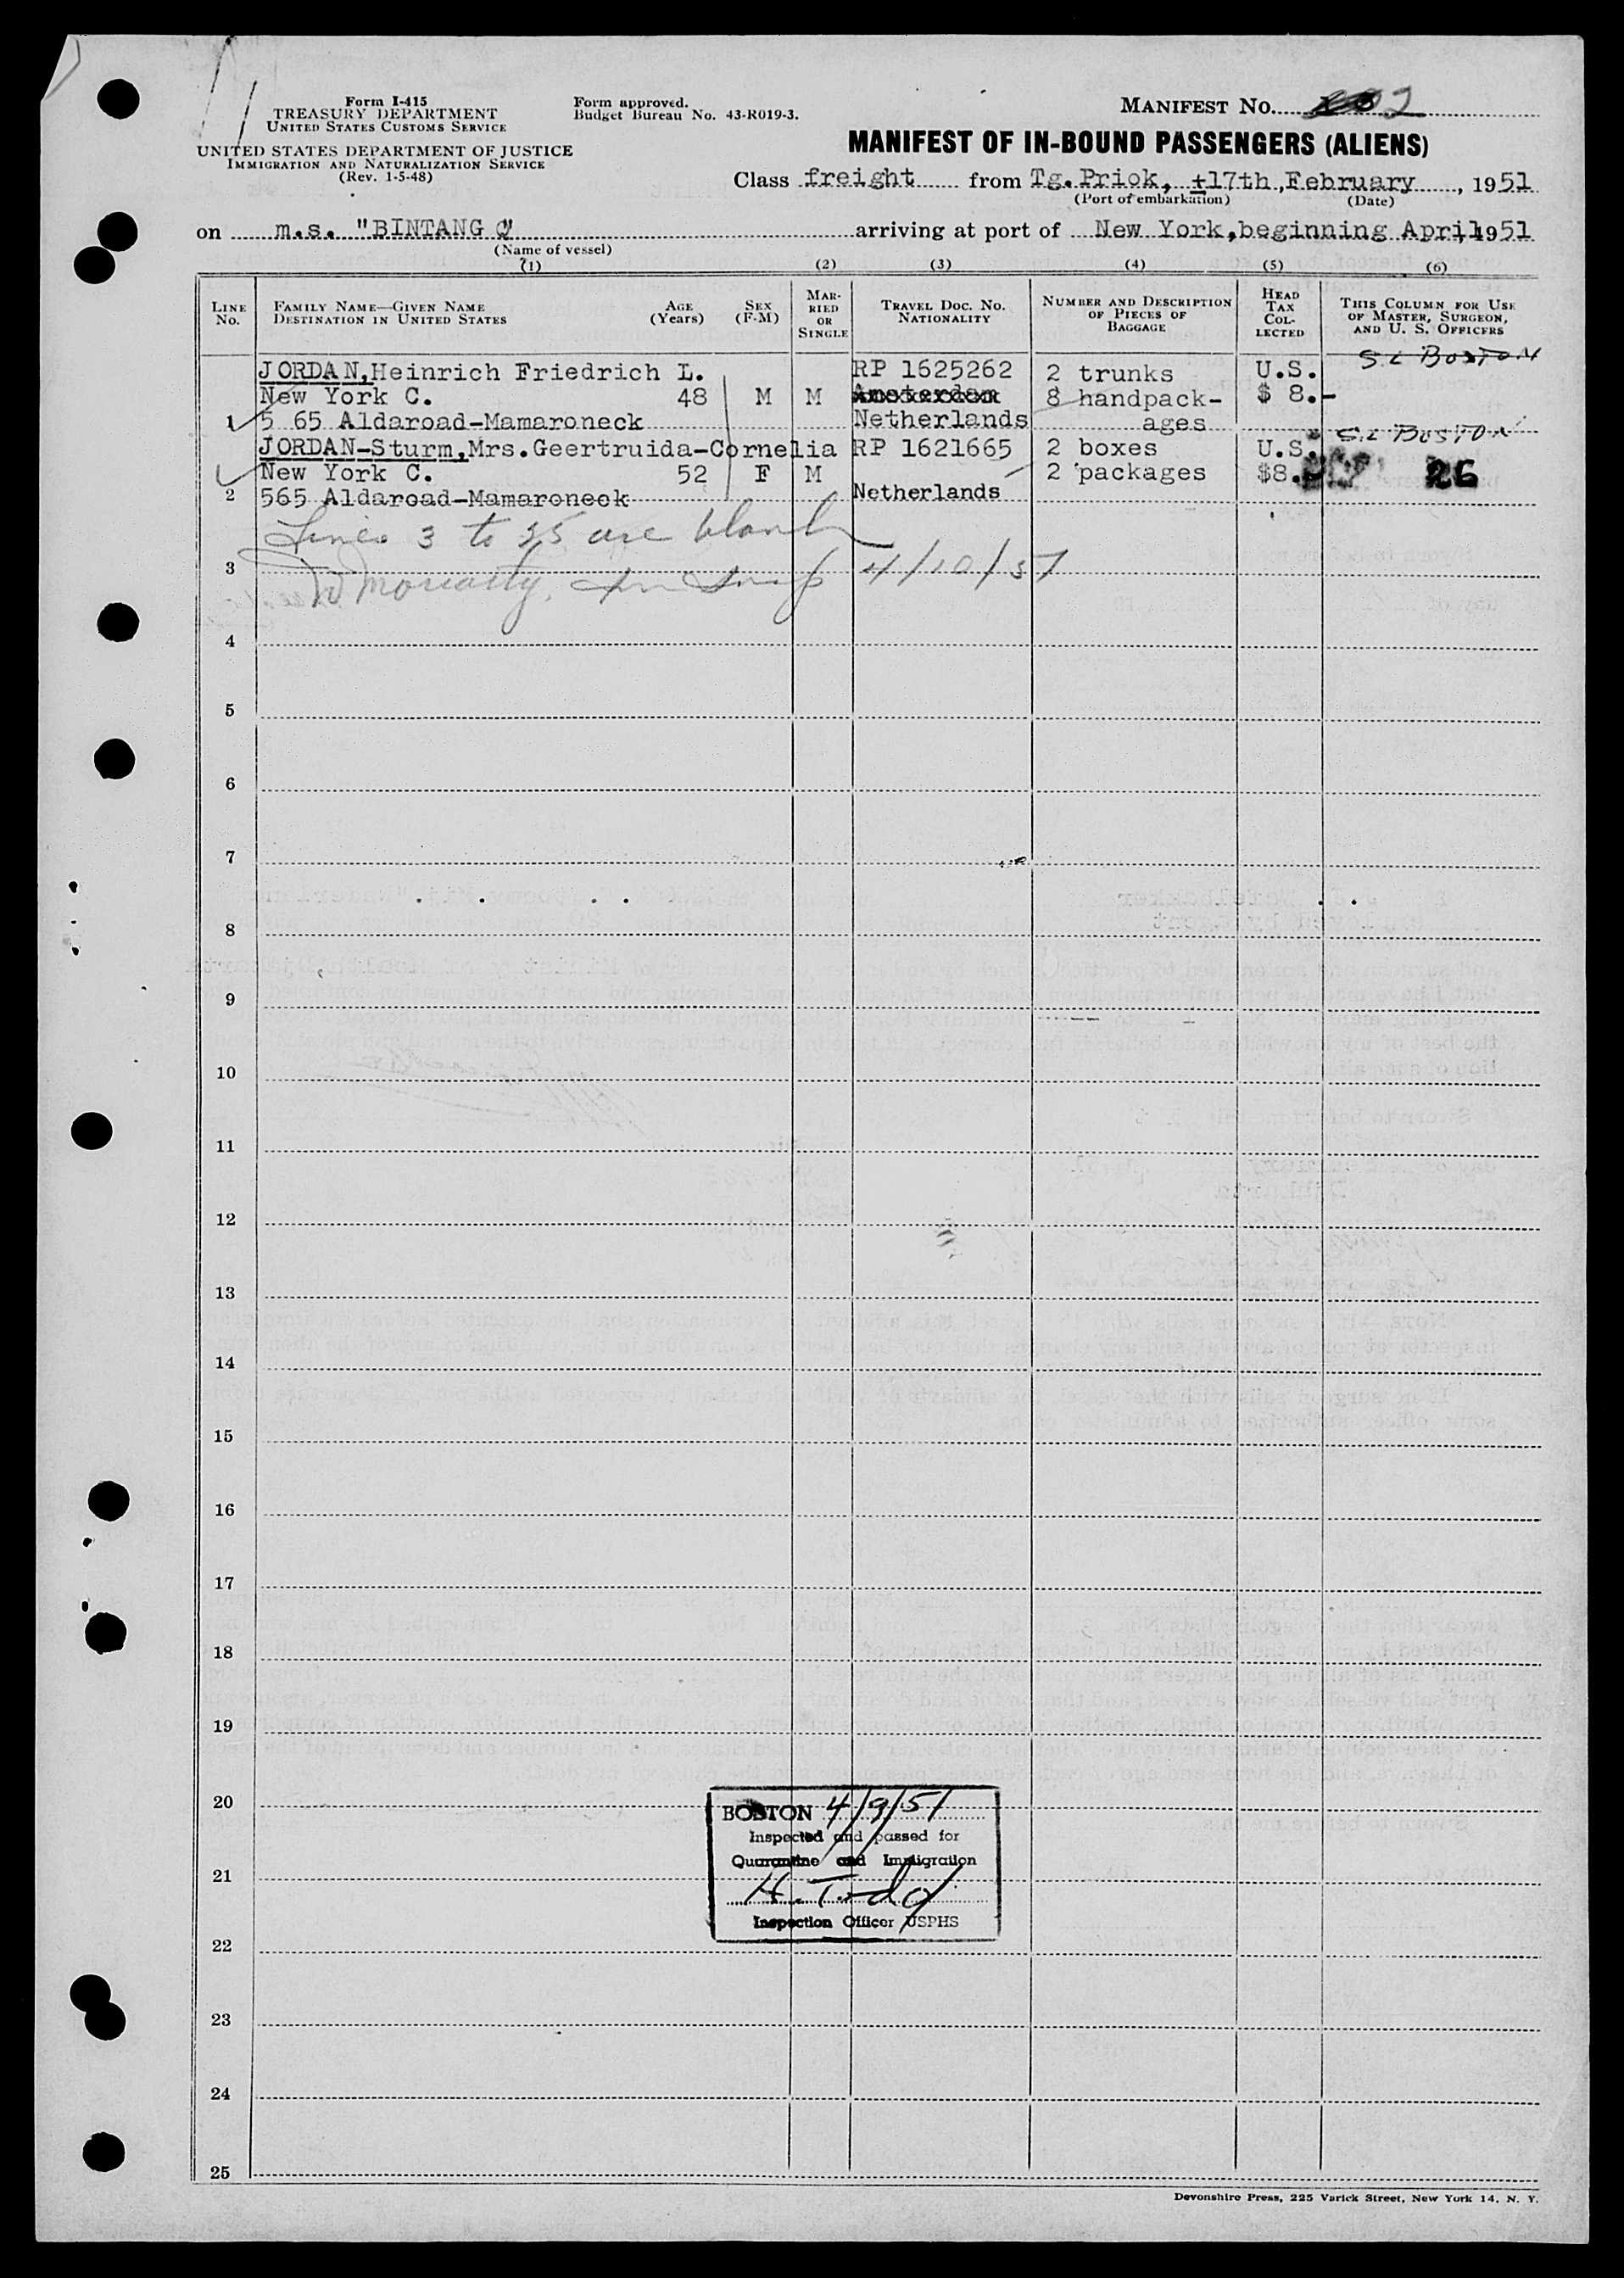 Form I-415
TREASURY DEPARTMENT
UNITED STATES CUSTOMS SERVICE
UNITED STATES DEPARTMENT OF JUSTICE
IMMIGRATION AND NATURALIZATION SERVICE
(Rev. 1-5-48)
Form approved.
Budget Bureau No. 43-R019-3.
MANIFEST No. 2
MANIFEST OF IN-BOUND PASSENGERS (ALIENS)
Class freight from Tg.Priok, ±17th,February, 1951
(Port of embarkation) (Date)
on m.s. "BINTANG" arriving at port of New York,beginning April, 1951
(Name of vessel)
(1) (2) (3) (4) (5) (6)
LINE No.
FAMILY NAME—GIVEN NAME
DESTINATION IN UNITED STATES
AGE (Years)
SEX (F-M)
MARRIED OR SINGLE
TRAVEL DOC. NO.
NATIONALITY
NUMBER AND DESCRIPTION OF PIECES OF BAGGAGE
HEAD TAX COLLECTED
THIS COLUMN FOR USE OF MASTER, SURGEON, AND U. S. OFFICERS
JORDAN,Heinrich Friedrich L. RP 1625262 2 trunks U.S. S.L BOSTON
New York C. 48 M M Amsterdam 8 handpack- $ 8.-
1 5 65 Aldaroad-Mamaroneck Netherlands ages
JORDAN-Sturm,Mrs.Geertruida-Cornelia RP 1621665 2 boxes U.S. S.L BOSTON
New York C. 52 F M 2 packages $8. 26
2 565 Aldaroad-Mamaroneck Netherlands
Lines 3 to 25 are blank
3 W Moriarty, 4/10/51
4
5
6
7
8
9
10
11
12
13
14
15
16
17
18
19
20
BOSTON 4/9/51
Inspected and passed for
Quarantine and Immigration
21
H. Todd
Inspection Officer USPHS
22
23
24
25
Devonshire Press, 225 Varick Street, New York 14, N. Y.